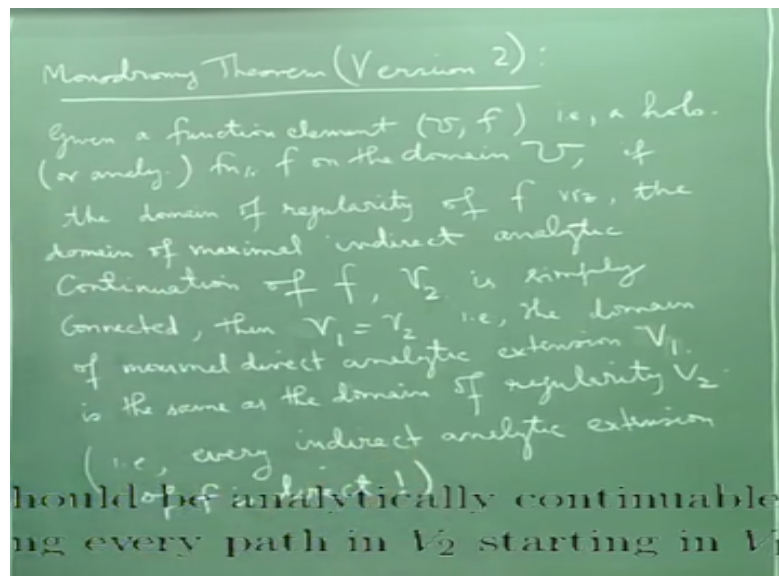 Monodromy Theorem (Version 2):
Given a function element (U, f) i.e, a holo.
(or analy.) fn. f on the domain U, if
the domain of regularity of f viz, the
domain of maximal indirect analytic
Continuation of f, V₂ is simply
Connected, then V₁ = V₂ i.e, the domain
of maximal direct analytic extension V₁
is the same as the domain of regularity V₂.
(i.e, every indirect analytic extension
of f is direct!)
hould be analytically continuable
ng every path in V₂ starting in V₁